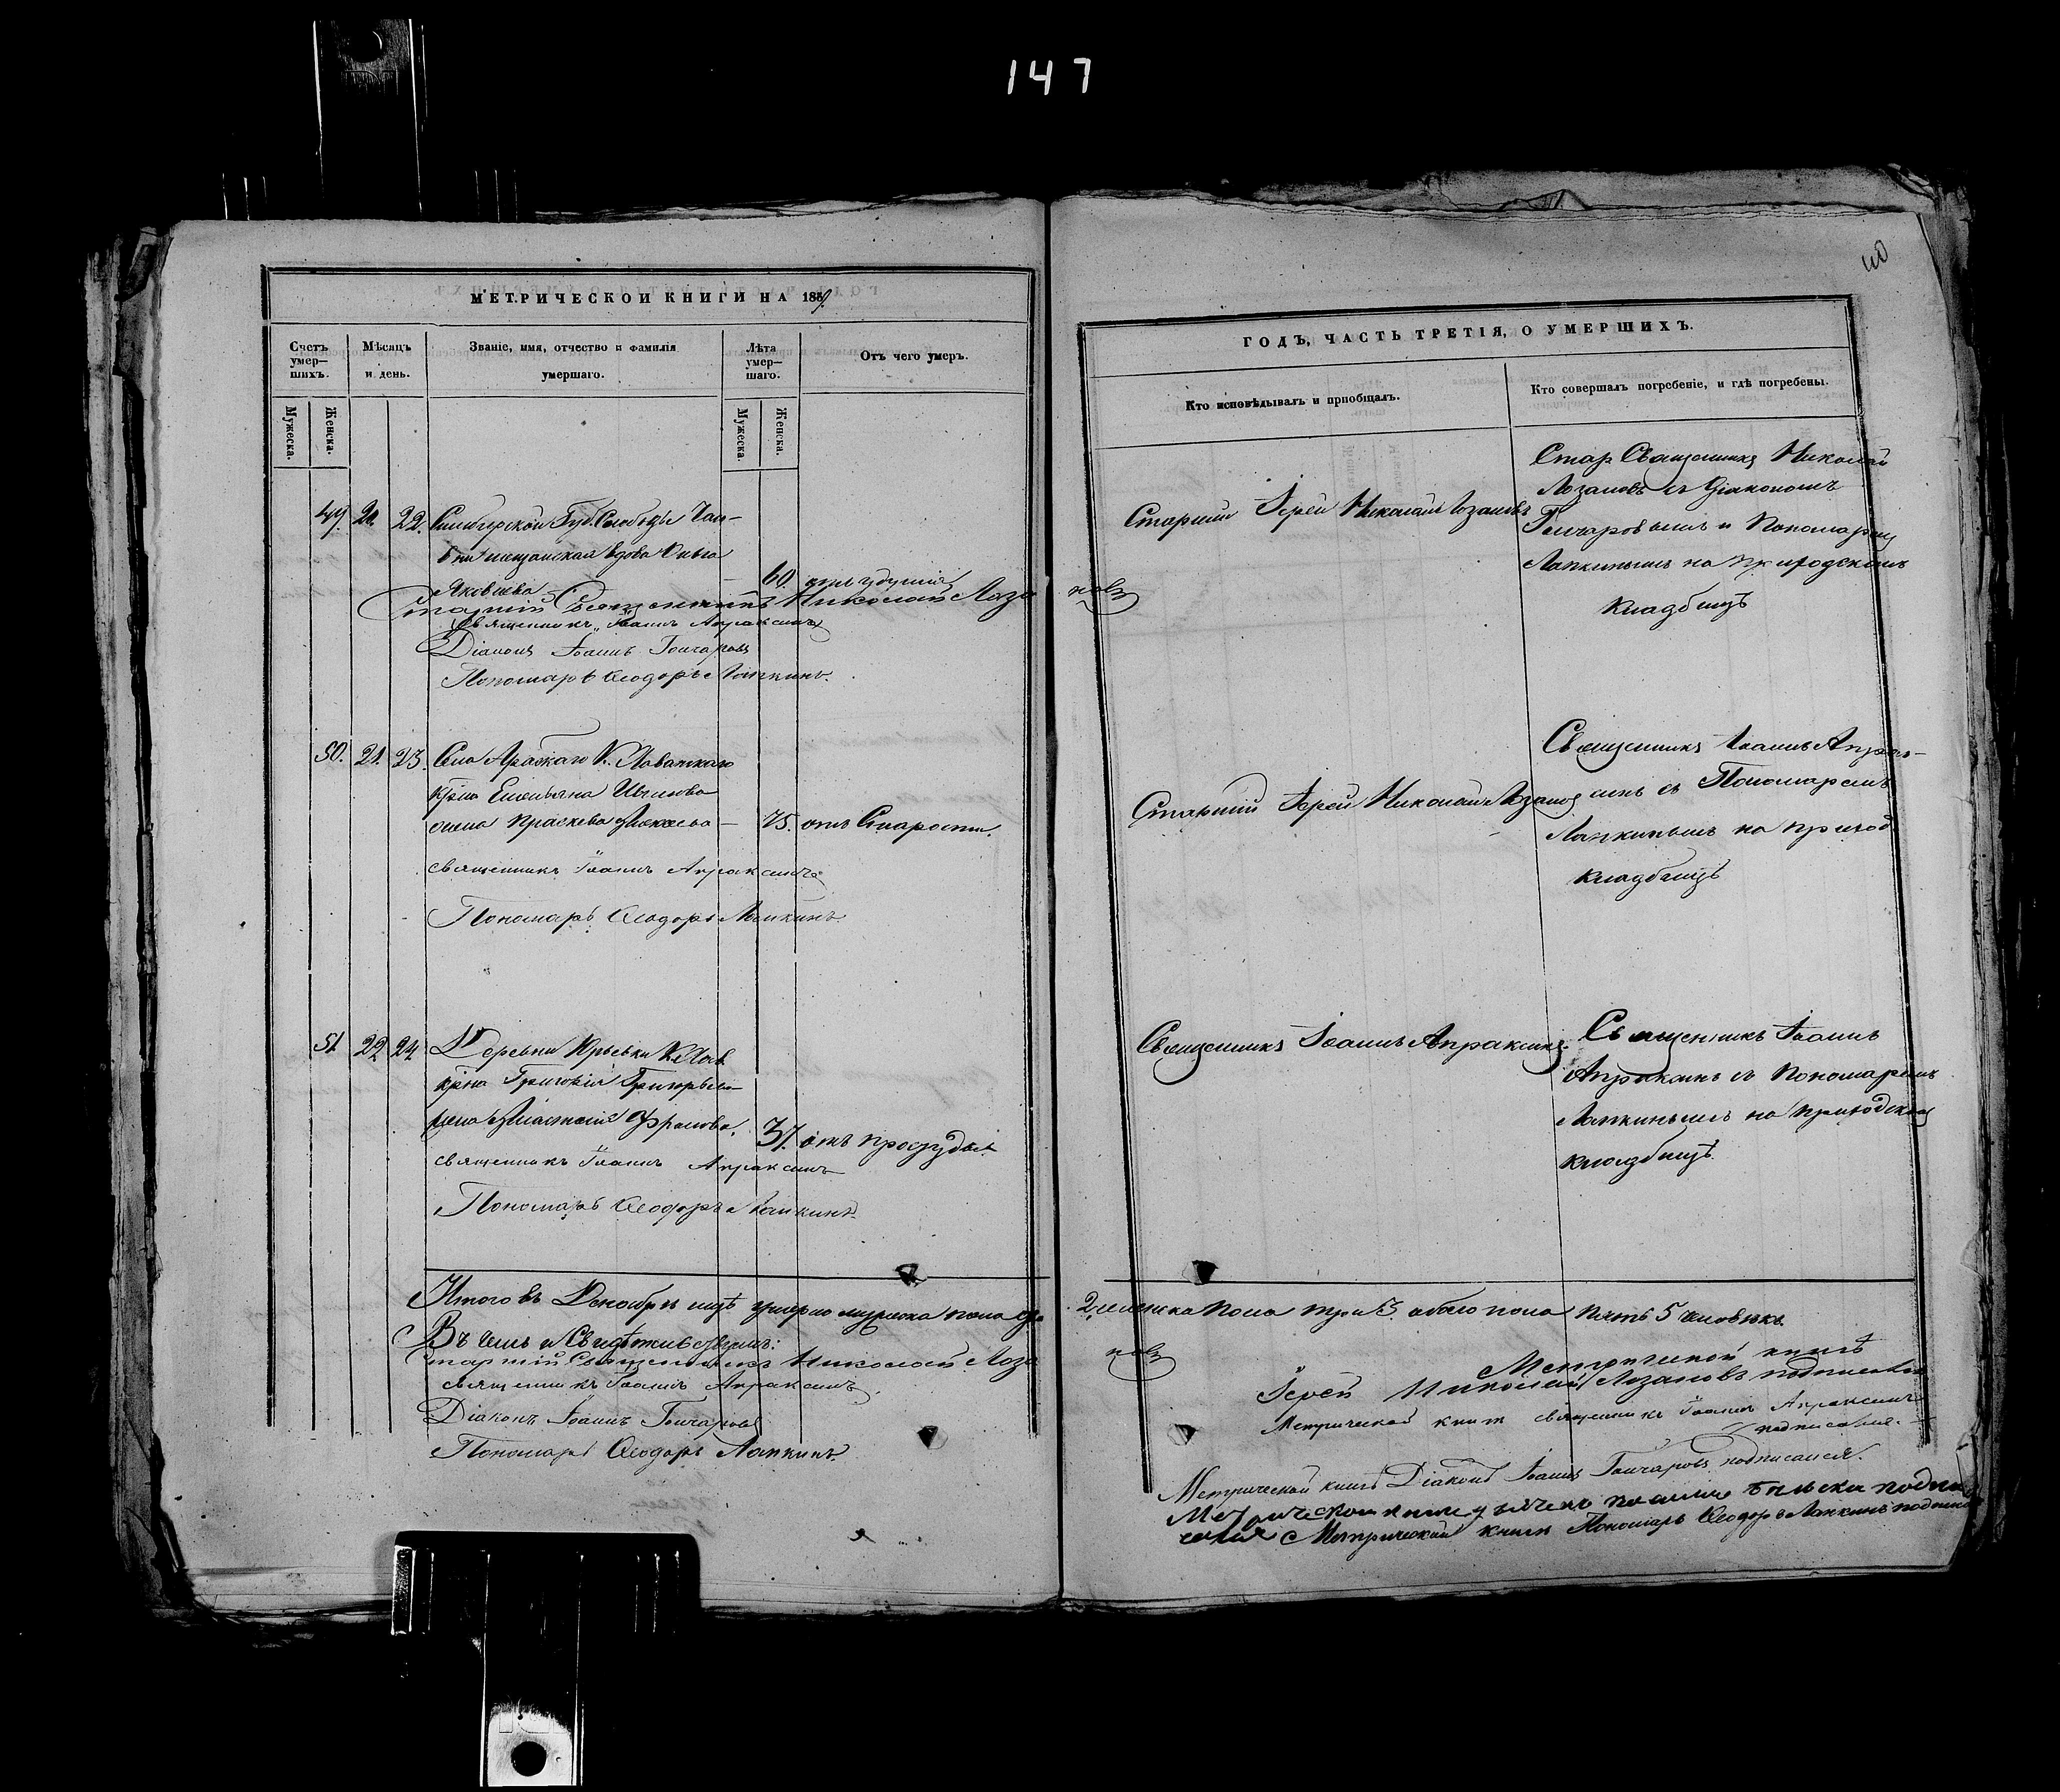 147
110
МЕТРИЧЕСКОЙ КНИГИ НА 185
Счетъ умер-шихъ.
Мѣсяцъ и день.
Званіе, имя, отчество и фамилія умершаго.
Лѣта умер-шаго.
Отъ чего умеръ.
Мужеска.
Женска.
Мужеска.
Женска.
49. 20. 22. Симбирской Губ. Слободы
мещанская вдова
Яковлева 60. отъ удушія
Старшій Священникъ Николай Лозановъ
Священникъ Іоаннъ Апраксинъ
Діаконъ Іоаннъ Гончаровъ
Пономарь Ѳеодоръ Лапкинъ.
50. 21. 23. Села
Емельяна
жена Праскева 75. отъ Старости.
священникъ Іоаннъ Апраксинъ
Пономарь Ѳеодоръ Лапкинъ
51 22 24 Деревни Юрьевки
Григорьева
жена 37. отъ простуды
священникъ Іоаннъ Апраксинъ
Пономарь Ѳеодоръ Лапкинъ
Итого въ Декабрѣ м-цѣ умерло мужеска пола
Въ чемъ и Свидѣтельствуемъ:
Старшій Священникъ Николай Лозановъ
священникъ Іоаннъ Апраксинъ
Діаконъ Іоаннъ Гончаровъ
Пономарь Ѳеодоръ Лапкинъ.
ГОДЪ, ЧАСТЬ ТРЕТІЯ, О УМЕРШИХЪ.
Кто исповѣдывалъ и пріобщалъ.
Кто совершалъ погребеніе, и гдѣ погребены.
Старшій Іерей Николай Лозановъ
Стар Священникъ Николай
Лозановъ съ Діакономъ
Гончаровымъ и Пономаремъ
Лапкинымъ на приходскомъ
кладбищѣ
Старшій Іерей Николай Лозановъ
Священникъ Іоаннъ Апрак-
синъ съ Пономаремъ
Лапкинымъ на приход
кладбищѣ
Священникъ Іоаннъ Апраксинъ.
Священникъ Іоаннъ
Апраксинъ съ Пономаремъ
Лапкинымъ на приходскомъ
кладбищѣ.
2, женска пола три 3. обоего пола пять 5 человѣкъ.
Метрической книгѣ
Іерей Николай Лозановъ подписался
Метрической книги священникъ Іоаннъ Апраксинъ
подписался.
Метрической книгѣ Діаконъ Іоаннъ Гончаровъ подписался.
Метрической книги Пономарь Ѳеодоръ Лапкинъ